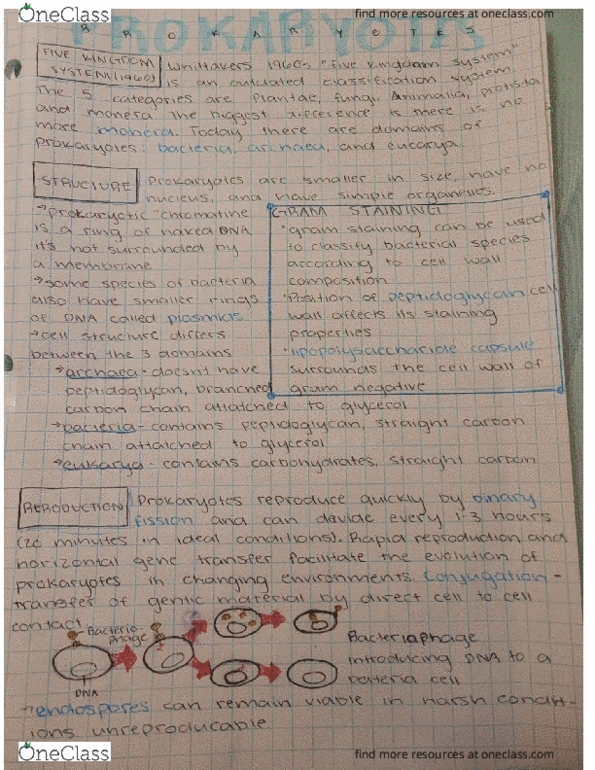 OneClass
find more resources at oneclass.com
PROKARYOTES
FIVE KINGDOM
SYSTEM (1960)
Whittakers 1960s "five kingdom system"
is an outdated classification system.
The 5 categories are Plantae, fungi, Animalia, protista
and monera The biggest difference is there is no
more monera. Today there are domains of
prokaryotes: bacteria, archaea, and eucarya
STRUCTURE
Prokaryotes are smaller in size, have no
nucleus, and have simple organelles.
→prokaryotic "chromatine
is a ring of naked DNA
it's not surrounded by
a membrane
→some species of bacteria
also have smaller rings
of DNA called plasmids
→cell structure differs
between the 3 domains
GRAM STAINING
·gram staining can be used
to classify bacterial species
according to cell wall
composition
·Position of peptidoglycan cell
wall affects its staining
properties
·lipopolysaccharide capsule
surrounds the cell wall of
gram negative
→archaea - doesnt have
peptidoglycan, branched
carbon chain attatched to glycerol
→bacteria - contains peptidoglycan, straight carbon
chain attatched to glycerol
→eukarya - contains carbohydrates, straight carbon
RERODUCTION
Prokaryotes reproduce quickly by binary
fission and can devide every 1-3 hours
(20 minutes in ideal conditions). Rapid reproduction and
horizontal gene transfer facilitate the evolution of
prokaryotes in changing environments. Conjugation -
transfer of gentic material by direct cell to cell
contact
Bacterio-
phage
DNA
Bacteriaphage
introducing DNA to a
bateria cell
→endospores can remain viable in harsh condit-
ions unreproducable
OneClass
find more resources at oneclass.com